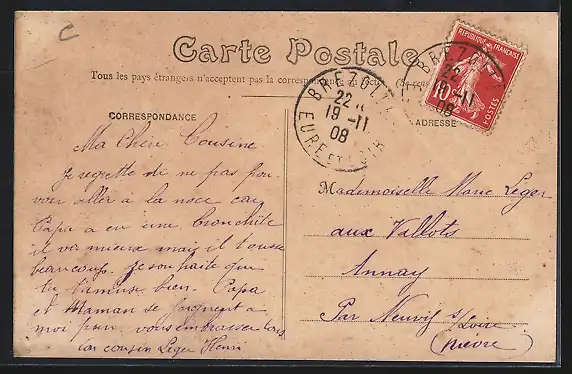 Carte Postale
Tous les pays étrangers n'acceptent pas la correspondance
CORRESPONDANCE
ADRESSE
REPUBLIQUE FRANÇAISE
10
POSTES
BREZOLLES
22
19 -11
08
EURE ET LOIR
BREZOLLES
22
19 -11
08
Ma Chère Cousine
Je regrette de ne pas pou-
voir aller à la noce car
Papa a eu une bronchite
il va mieux mais il tousse
beaucoup. Je souhaite que
tu t'amuse bien. Papa
et Maman se joignent a
moi pour vous embrasser tous
ton cousin Leger Henri
Mademoiselle Marie Leger
aux Vallots
Annay
Par Neuvy s/Loire
(Nièvre)